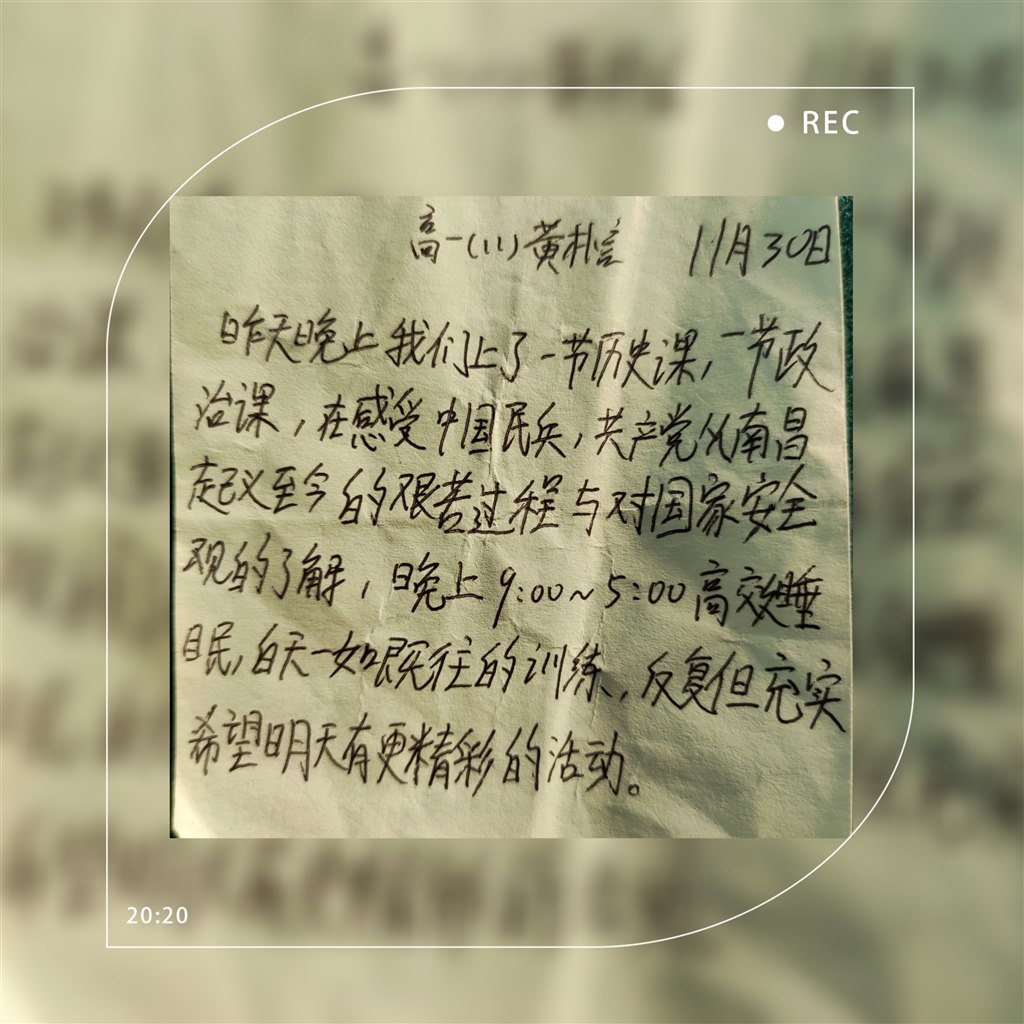 REC
高一(11)黄朴信 11月30日
昨天晚上我们上了一节历史课,一节政
治课,在感受中国民兵,共产党从南昌
起义至今的艰苦过程与对国家安全
观的了解,晚上9:00~5:00高效睡
眠,白天一如既往的训练,反复但充实
希望明天有更精彩的活动。
20:20